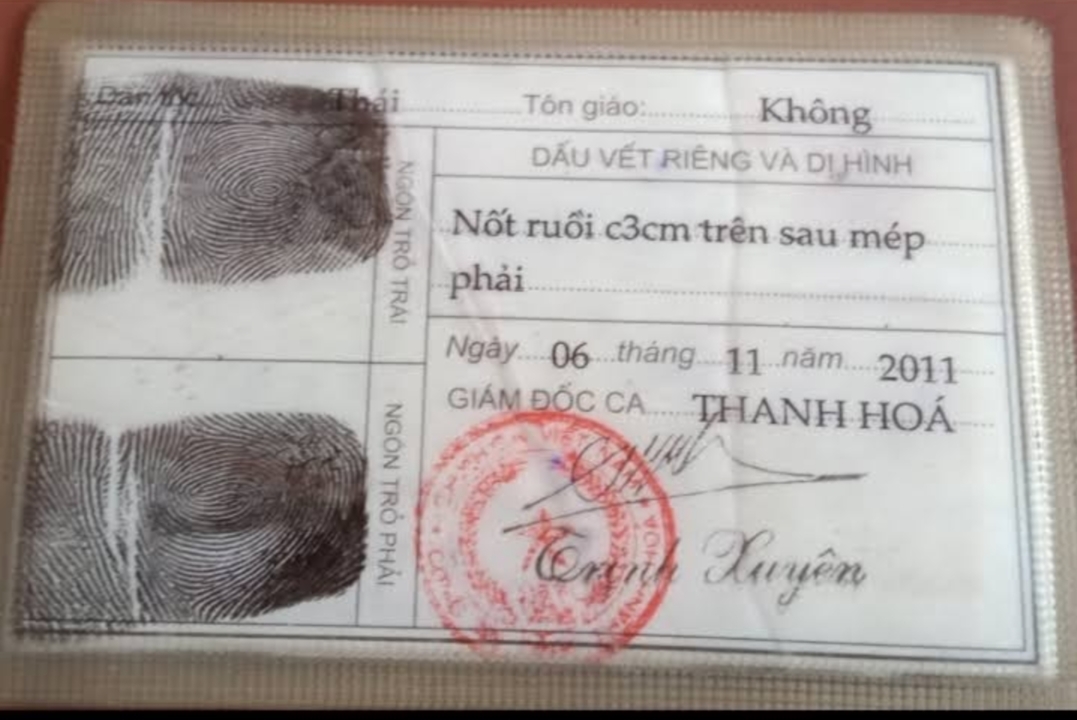 Dân tộc: Thái Tôn giáo: Không
DẤU VẾT RIÊNG VÀ DỊ HÌNH
Nốt ruồi c3cm trên sau mép
phải
NGÓN TRỎ TRÁI
Ngày 06 tháng 11 năm 2011
GIÁM ĐỐC CA THANH HOÁ
NGÓN TRỎ PHẢI
Trịnh Xuyên